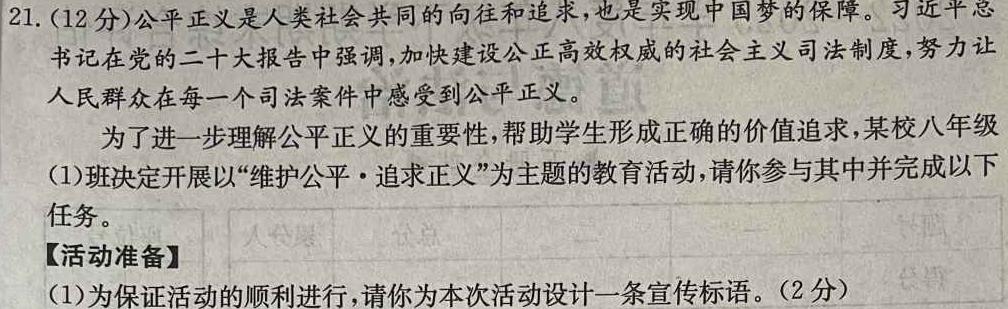 21.(12分)公平正义是人类社会共同的向往和追求,也是实现中国梦的保障。习近平总
书记在党的二十大报告中强调,加快建设公正高效权威的社会主义司法制度,努力让
人民群众在每一个司法案件中感受到公平正义。
为了进一步理解公平正义的重要性,帮助学生形成正确的价值追求,某校八年级
(1)班决定开展以“维护公平·追求正义”为主题的教育活动,请你参与其中并完成以下
任务。
【活动准备】
(1)为保证活动的顺利进行,请你为本次活动设计一条宣传标语。(2分)